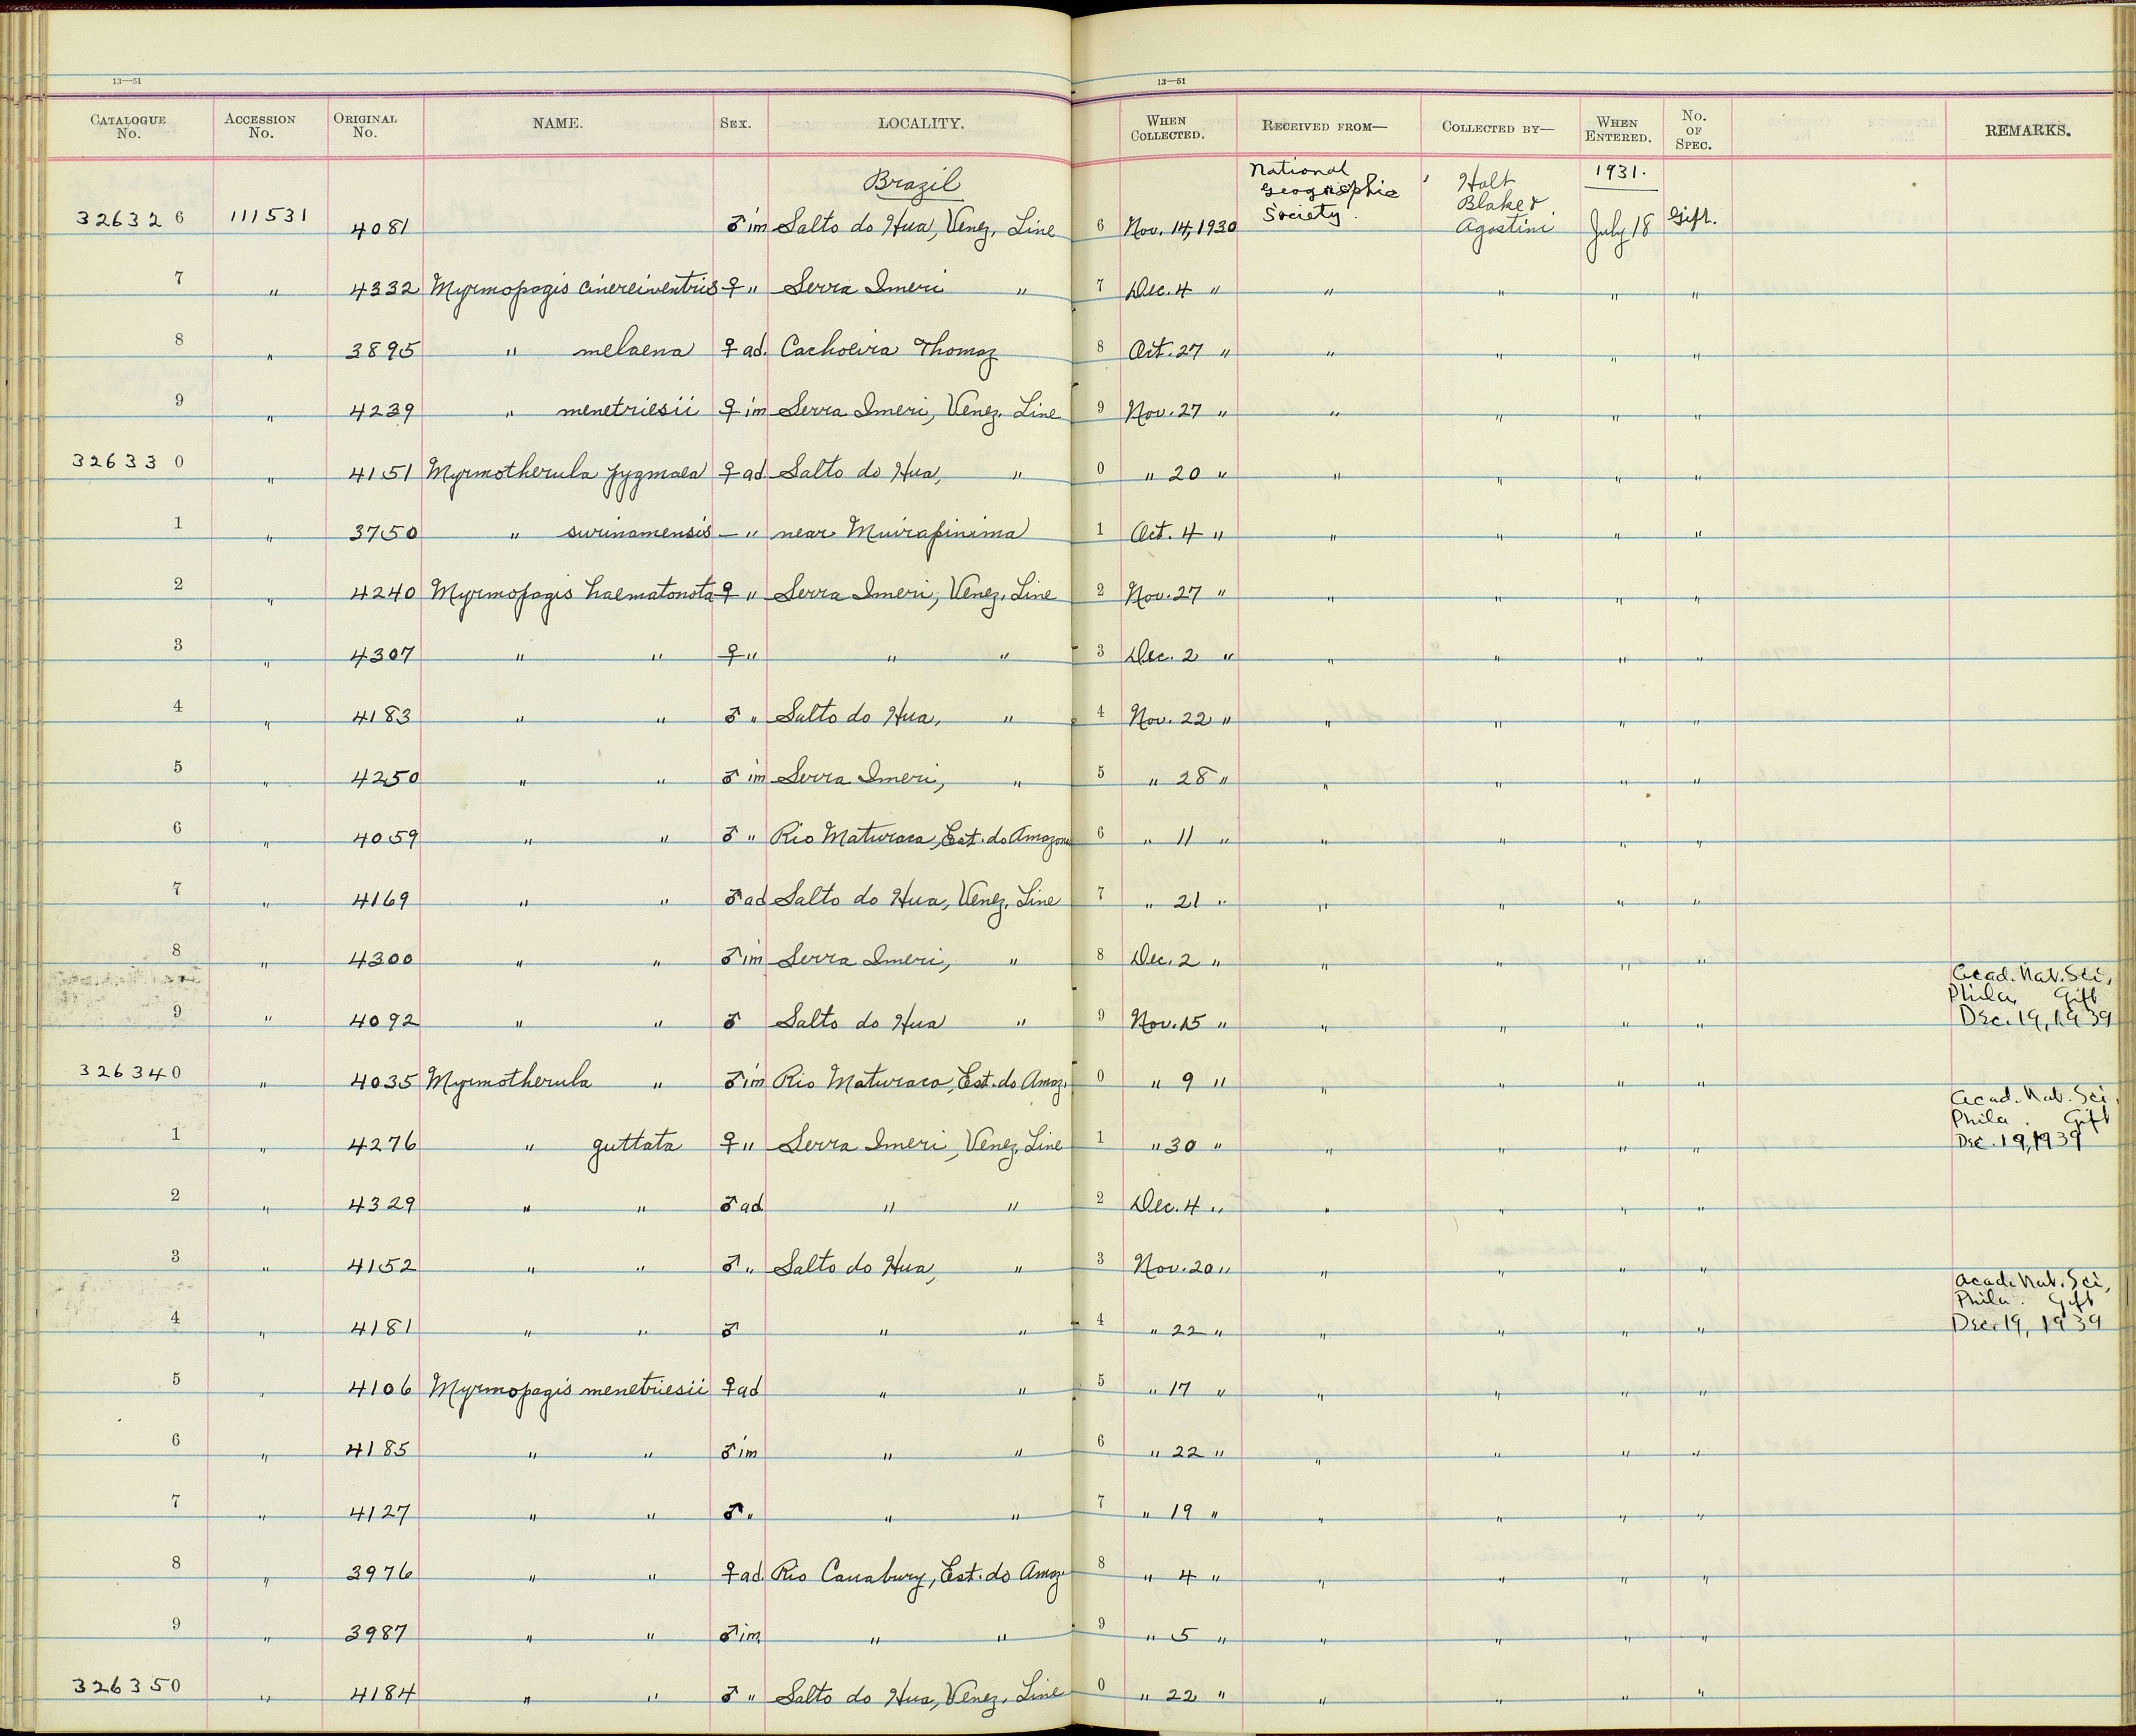 13—51 13—51
CATALOGUE No. ACCESSION No. ORIGINAL No. NAME. SEX. LOCALITY. WHEN COLLECTED. RECEIVED FROM— COLLECTED BY— WHEN ENTERED. No. OF SPEC. REMARKS.
Brazil National Geographic Society. Holt Blake & Agostini 1931.
32632 6 111531 4081 ♂ im Salto do Hua, Venez. Line 6 Nov. 14, 1930 July 18 Gift.
7 " 4332 Myrmopagis cinereiventris ♀ " Serra Imeri " 7 Dec. 4 " " " " "
8 " 3895 " melaena ♀ ad. Cachoeira Thomaz 8 Oct. 27 " " " " "
9 " 4239 " menetriesii ♀ im Serra Imeri, Venez. Line 9 Nov. 27 " " " " "
32633 0 " 4151 Myrmotherula pygmaea ♀ ad. Salto do Hua, " 0 " 20 " " " " "
1 " 3750 " surinamensis — " near Muirapinima 1 Oct. 4 " " " " "
2 " 4240 Myrmopagis haematonota ♀ " Serra Imeri, Venez. Line 2 Nov. 27 " " " " "
3 " 4307 " " ♀ " " " 3 Dec. 2 " " " " "
4 " 4183 " " ♂ " Salto do Hua, " 4 Nov. 22 " " " " "
5 " 4250 " " ♂ im Serra Imeri, " 5 " 28 " " " " "
6 " 4059 " " ♂ " Rio Maturaca, Est. do Amazonas 6 " 11 " " " " "
7 " 4169 " " ♂ ad Salto do Hua, Venez. Line 7 " 21 " " " " "
8 " 4300 " " ♂ im Serra Imeri, " 8 Dec. 2 " " " " "
9 " 4092 " " ♂ Salto do Hua " 9 Nov. 15 " " " " " Acad. Nat. Sci., Phila. Gift Dec. 19, 1939
32634 0 " 4035 Myrmotherula " ♂ im Rio Maturaca, Est. do Amaz. 0 " 9 " " " " "
1 " 4276 " guttata ♀ " Serra Imeri, Venez. Line 1 " 30 " " " " " Acad. Nat. Sci, Phila. Gift Dec. 19, 1939
2 " 4329 " " ♂ ad " " 2 Dec. 4 " " " " "
3 " 4152 " " ♂ " Salto do Hua, " 3 Nov. 20 " " " " "
4 " 4181 " " ♂ " " 4 " 22 " " " " " Acad. Nat. Sci, Phila. Gift Dec. 19, 1939
5 " 4106 Myrmopagis menetriesii ♀ ad " " 5 " 17 " " " " "
6 " 4185 " " ♂ im " " 6 " 22 " " " " "
7 " 4127 " " ♂ " " " 7 " 19 " " " " "
8 " 3976 " " ♀ ad. Rio Cauabury, Est. do Amaz. 8 " 4 " " " " "
9 " 3987 " " ♂ im. " " 9 " 5 " " " " "
32635 0 " 4184 " " ♂ " Salto do Hua, Venez. Line 0 " 22 " " " " "